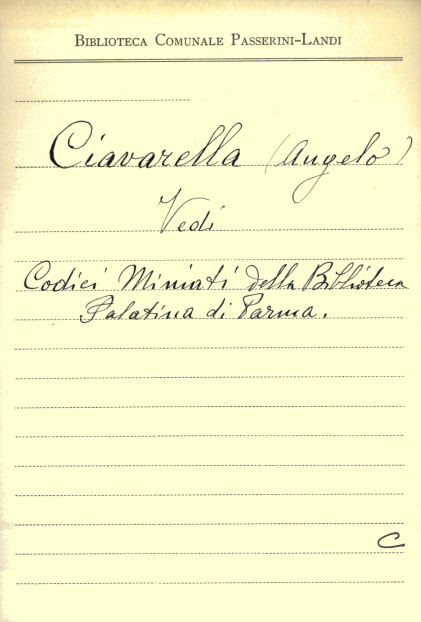 Biblioteca Comunale Passerini-Landi
Ciavarella (Angelo)
Vedi
Codici Miniati della Biblioteca
Palatina di Parma.
C